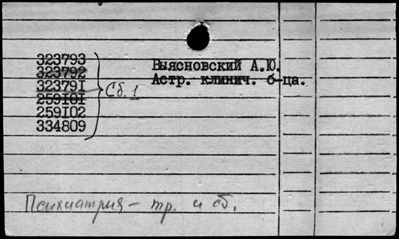 323793
323792
323791
259101
259102
334809
Сб. 1
Выясновский А.Ю.
Астр. клинич. б-ца.
Психиатрия – тр. и сб.